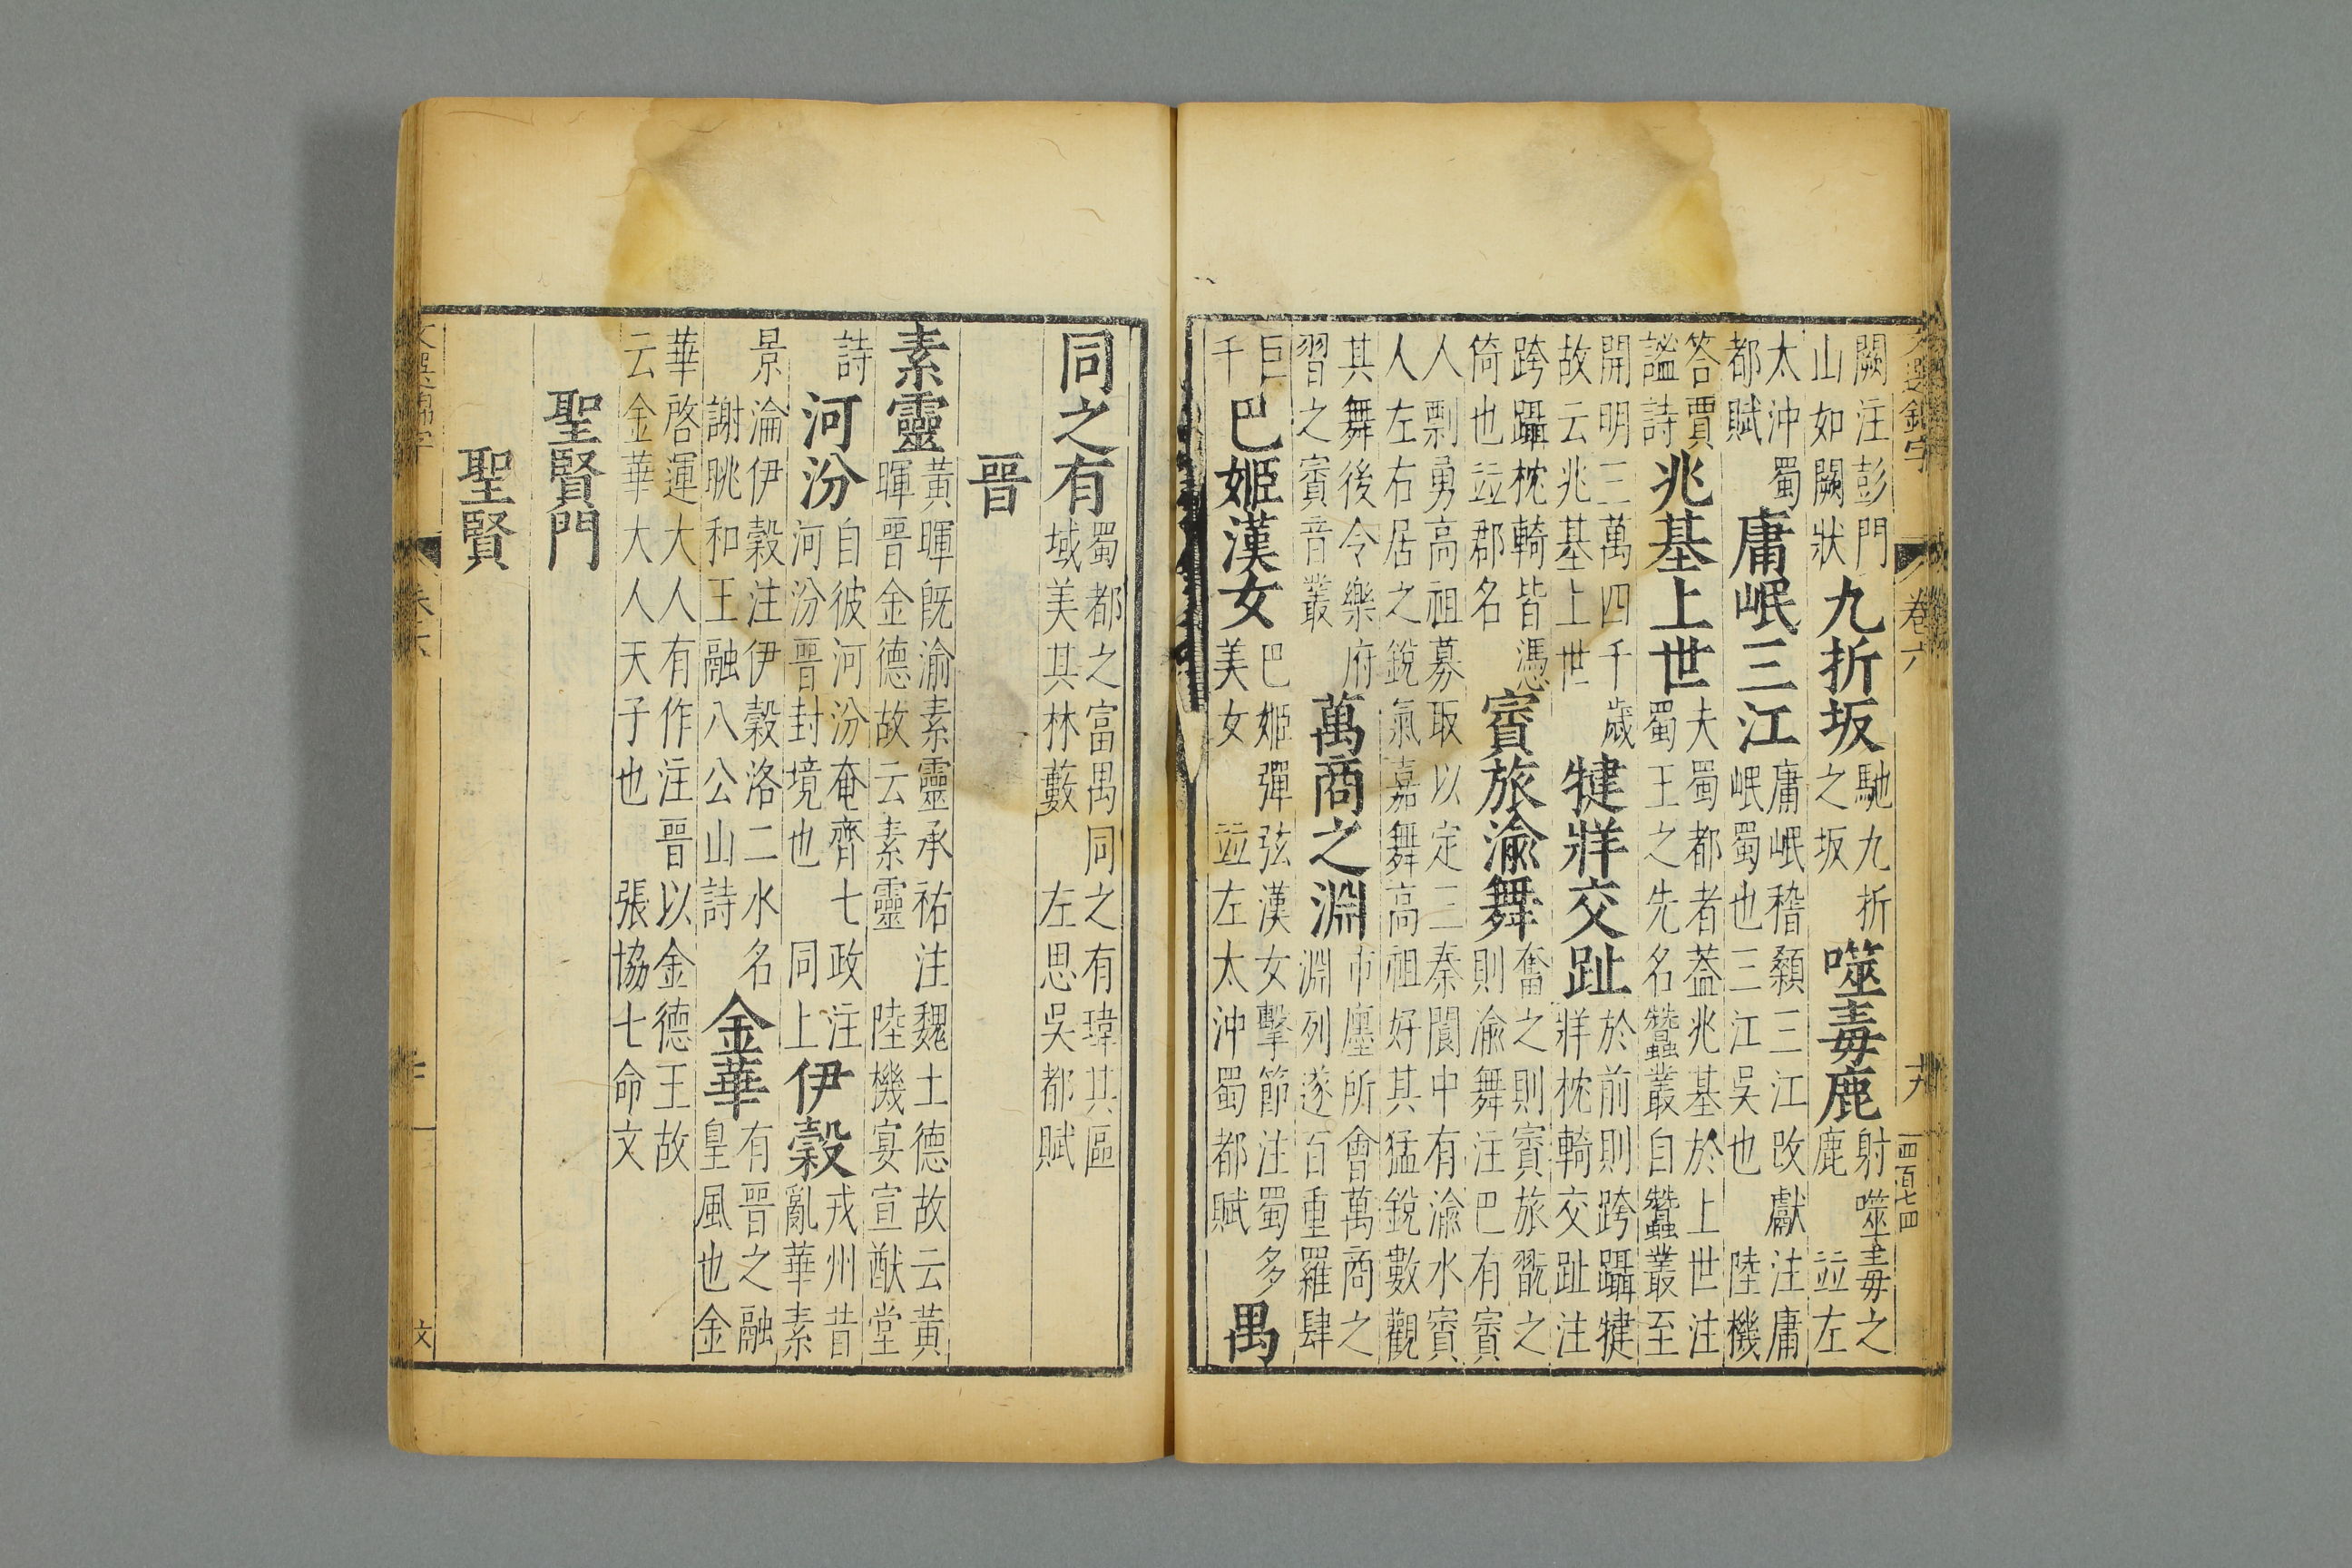 文選錦字 卷六 十九 四百七四
闕注彭門
山如闕狀
九折坂
馳九折
之坂
噬毒鹿
射噬毒之
鹿 竝左
太沖蜀
都賦
庸岷三江
庸岷稽顙三江改獻注庸
岷蜀也三江吳也 陸機
答賈
謐詩
兆基上世
夫蜀都者葢兆基於上世注
蜀王之先名蠶叢自蠶叢至
開明三萬四千歲
故云兆基上世
犍牂交趾
於前則跨躡犍
牂枕輢交趾注
跨躡枕輢皆憑
倚也竝郡名
賨旅渝舞
奮之則賨旅翫之
則渝舞注巴有賨
人剽勇高祖募取以定三秦閬中有渝水賨
人左右居之銳氣嘉舞高祖好其猛銳數觀
其舞後令樂府
習之賨音叢
萬商之淵
市廛所會萬商之
淵列遂百重羅肆
巨
千
巴姬漢女
巴姬彈弦漢女擊節注蜀多
美女 竝左太沖蜀都賦
禺
同之有
蜀都之富禺同之有瑋其區
域美其林藪 左思吳都賦
晉
素靈
黃暉既渝素靈承祐注魏土德故云黃
暉晉金德故云素靈 陸機宴宣猷堂
詩
河汾
自彼河汾奄齊七政注
河汾晉封境也 同上
伊榖
戎州昔
亂華素
景淪伊榖注伊榖洛二水名
謝眺和王融八公山詩
金華
有晉之融
皇風也金
華啓運大人有作注晉以金德王故
云金華大人天子也 張協七命文
聖賢門
聖賢
卷六
文